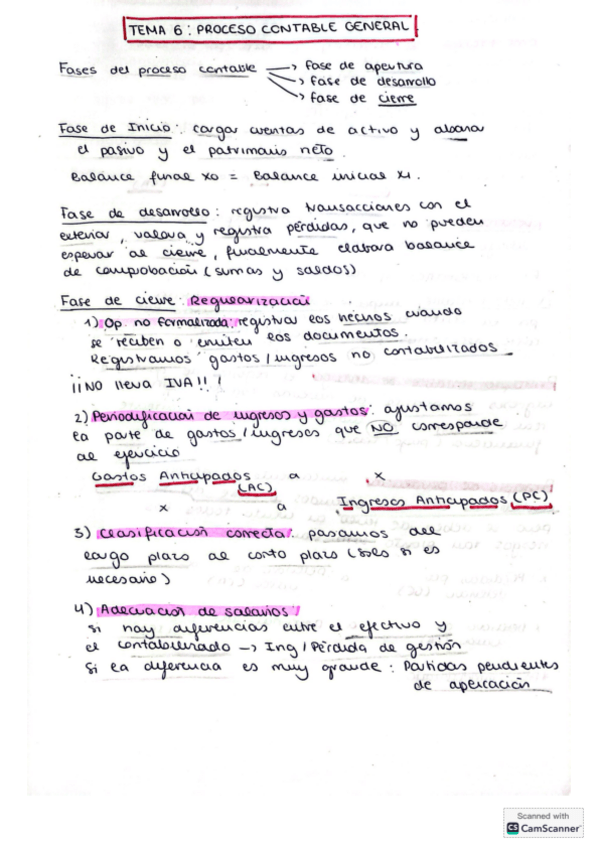 TEMA 6: PROCESO CONTABLE GENERAL
Fases del proceso contable → fase de apertura
→ fase de desarrollo
→ fase de cierre
Fase de Inicio: cargar cuentas de activo y abonar
el pasivo y el patrimonio neto.
Balance final x0 = Balance inicial x1.
Fase de desarrollo: registra transacciones con el
exterior, valora y registra pérdidas, que no pueden
esperar al cierre, finalmente elabora balance
de comprobación (sumas y saldos)
Fase de cierre: Regularización
1) Op. no formalizada: registrar los hechos cuando
se reciben o emiten los documentos.
Registramos gastos/ingresos no contabilizados
¡¡NO lleva IVA!!
2) Periodificación de ingresos y gastos: ajustamos
la parte de gastos/ingresos que NO corresponde
al ejercicio
Gastos Anticipados a x
(AC)
x a Ingresos Anticipados (PC)
3) Clasificación correcta: pasamos del
largo plazo al corto plazo (solo si es
necesario)
4) Adecuación de salarios:
si hay diferencias entre el efectivo y
el contabilizado → Ing/Pérdida de gestión
Si la diferencia es muy grande: Partidas pendientes
de aplicación
Scanned with
CS CamScanner